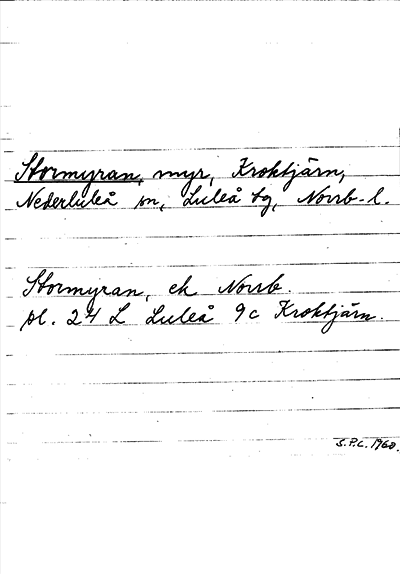 Stormyran, myr, Kroktjärn,
Nederluleå sn, Luleå tg, Norrb-l.
Stormyran, ek Norrb.
pl. 24 L Luleå 9c Kroktjärn.
S.P.L. 1960.